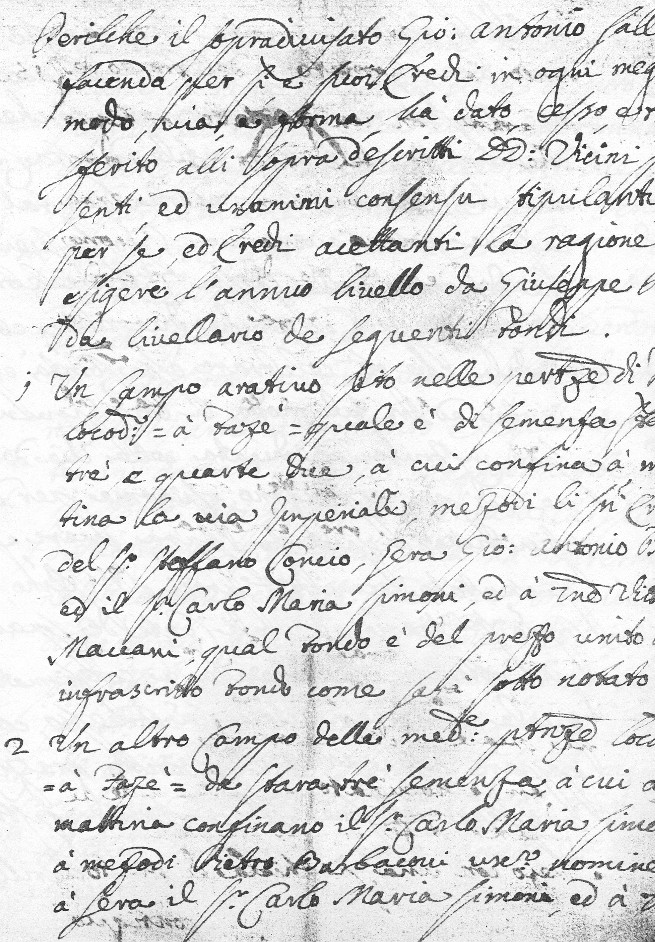 Perilche il sopradivisato Gio: Antonio
facendo per se e suoi Eredi in ogni
modo via, e forma hà dato cesso e
ferito alli sopradescritti DD: Vicini
senti ed unanimi consensu stipulanti
per se, ed Eredi acettanti la ragione
esigere l'annuo livello da Giuseppe
da livellario de sequenti fondi.
1 Un campo arativo sito nelle
locod: = à Fazè = quale è di semenza
trè e quarte due, à cui confina à
tina la via Imperiale, mezodi li
del Sr. Steffano Concio, sera Gio: Antonio
ed il Sr. Carlo Maria Simoni, ed à
Maccani, qual fondo è del prezzo unito
infrascritto fondo come sarà sotto notato
2 Un altro Campo delle med.e
= à Fazè = da stara trè semenza à cui a
mattina confinano il Sr. Carlo Maria
à mezodi Pietro Barbacovi nomine
à sera il Sr. Carlo Maria Simoni, ed à